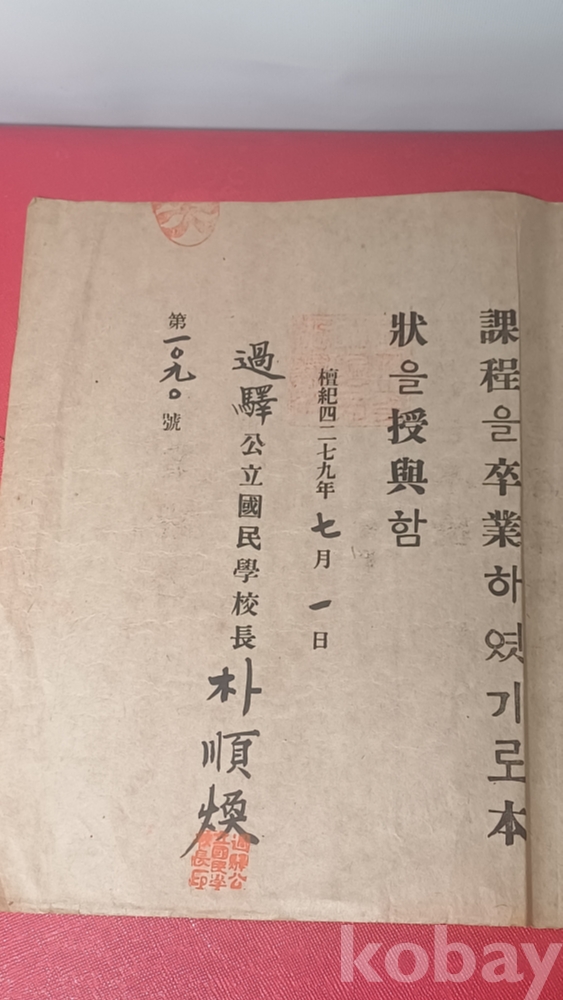 課程을卒業하엿기로本
狀을授與함
檀紀四二七九年七月一日
過驛公立國民學校長朴順煥
第一〇九〇號
過驛公立國民學校長印
kobay